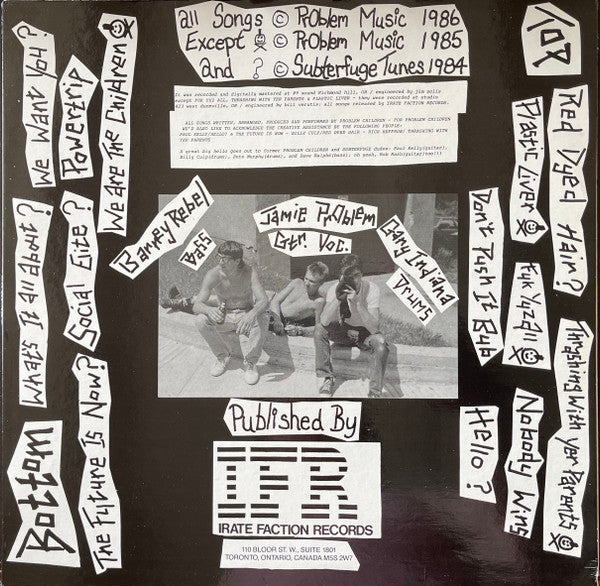 all Songs © PrOblem Music 1986
Except © PrOblem Music 1985
and ? © Subterfuge Tunes 1984
It was recorded and digitally mastered at
sound Richmond Hill, ON / engineered by
except FUK YUZ ALL, THRASHING WITH YER PARENTS & PLASTIC LIVER - they were recorded at studio
all songs released by IRATE FACTION RECORDS.
ALL SONGS WRITTEN, ARRANGED, PRODUCED AND PERFORMED BY PROBLEM CHILDREN - FOR PROBLEM CHILDREN
WE'D ALSO LIKE TO ACKNOWLEDGE THE CREATIVE ASSISTANCE BY THE FOLLOWING PEOPLE:
THRASHING WITH
YER PARENTS
A great big hello goes out to former PROBLEM CHILDREN and SUBTERFUGE dudes: Paul Kelly(guitar),
We Want You?
Powertrip
We Are The Children
What's It all about?
Social Lite?
Bottom
The Future Is Now?
Barney Rebel
Bass
Jamie PrOblem
Gtr. Voc.
Gary Indiana
Drums
Top
Red Dyed Hair?
Plastic Liver
Don't Push It Bub
Fuk Yuz all
Thrashing With yer Parents
Hello?
Nobody Wins
Published By
IFR
IRATE FACTION RECORDS
110 BLOOR ST. W., SUITE 1801
TORONTO, ONTARIO, CANADA M5S 2W7